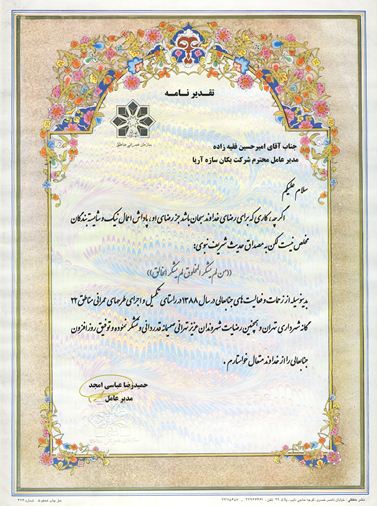 تقدیرنامه
سازمان عمرانی مناطق
جناب آقای امیرحسین فقیه زاده
مدیر عامل محترم شرکت یگان سازه آریا
سلام علیکم
اگر چه، کاری که برای رضای خداوند سبحان باشد جز رضای او، پاداش اعمال نیک و شایسته بندگان
مخلص نیست لکن به مصداق حدیث شریف نبوی:
((من لم یشکر المخلوق لم یشکر الخالق))
بدینوسیله از زحمات و فعالیت های جنابعالی در سال ۱۳۸۸ در راستای تکمیل و اجرای طرحهای عمرانی مناطق ۲۲
گانه شهرداری تهران و همچنین رضایت شهروندان عزیز تهرانی صمیمانه قدردانی و تشکر نموده و توفیق روز افزون
جنابعالی را از خداوند متعال خواستارم .
حمیدرضا عباسی امجد
مدیر عامل